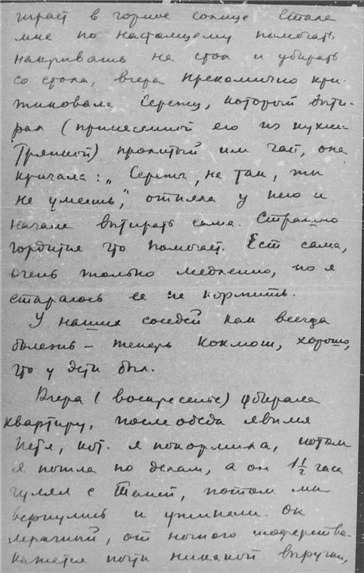 играет в горное солнце Стала
мне по настоящему помогать
накрывать на стол и убирать
со стола, вчера прекомично кри-
тиковала Сережу, который выти-
рал (принесенной его из кухни
тряпкой) пролитый им чай, она
кричала: "Сережа, не так, ты
не умеешь," отняла у него и
начала вытирать сама. Страшно
гордится что помогает. Ест сама,
очень только медленно, но я
стараюсь ее не кормить.
У наших соседей как всегда
болезнь – теперь коклюш, хорошо,
что у дети был.
Вчера (воскресенье) убирала
квартиру, после обеда явился
Петя, кот. я покормила, потом
я пошла по делам, а он 1½ часа
гулял с Таней, потом мы
вернулись и ужинали. Он
мрачный, от нового
кажется почти никакой выручки,